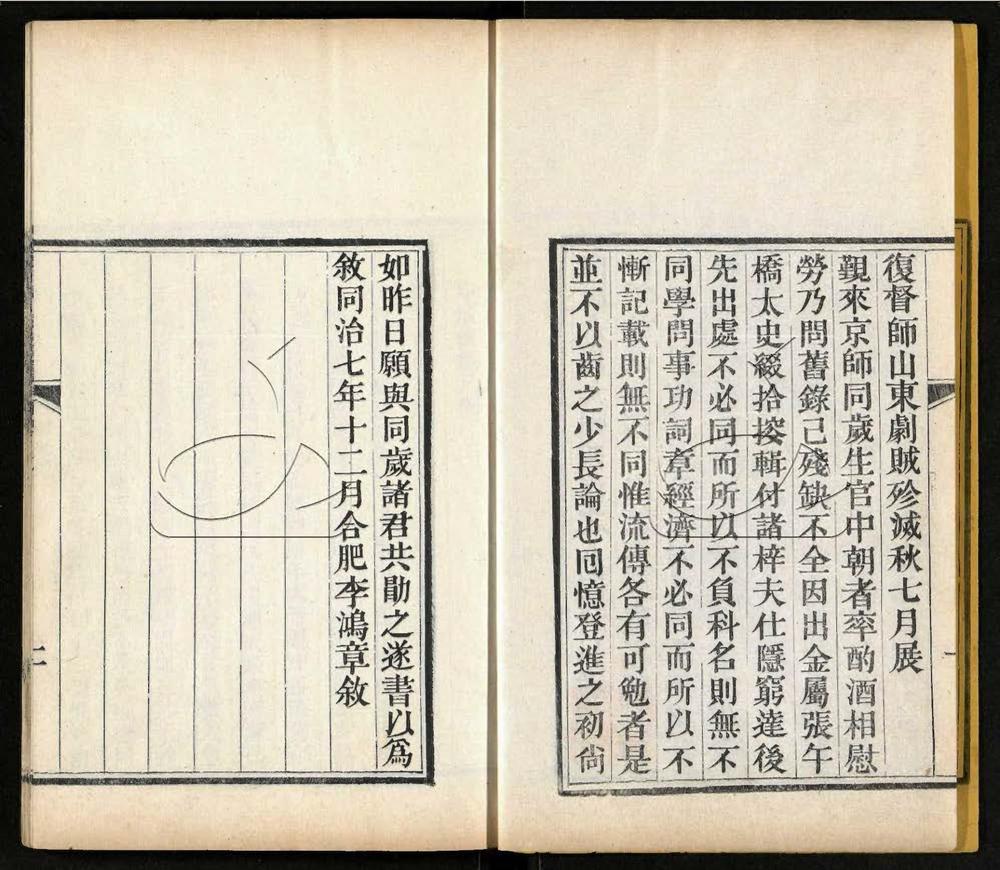 復督師山東劇賊殄滅秋七月展
覲來京師同歲生官中朝者率酌酒相慰
勞乃問舊錄已殘缺不全因出金屬張午
橋太史綴拾按輯付諸梓夫仕隱窮達後
先出處不必同而所以不負科名則無不
同學問事功詞章經濟不必同而所以不
慚記載則無不同惟流傳各有可勉者是
並不以齒之少長論也囘憶登進之初尙
如昨日願與同歲諸君共勖之遂書以爲
敘同治七年十二月合肥李鴻章敘